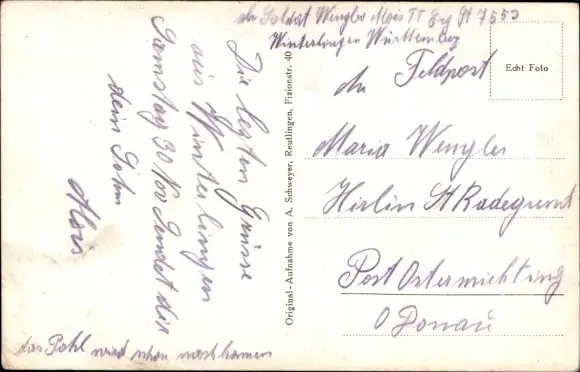 Soldat Wengler Alois
Winterlingen Württemberg
Feldpost
Echt Foto
Maria Wengler
St Radegund
Post Ostermiething
O Donau
Original-Aufnahme von A. Schweyer, Reutlingen, Fizionstr. 40
Die lezten Grüsse
aus Winterlingen
Samstag 30 Nov Sendet dir
dein Sohn
Alois
wird schon nachkomen